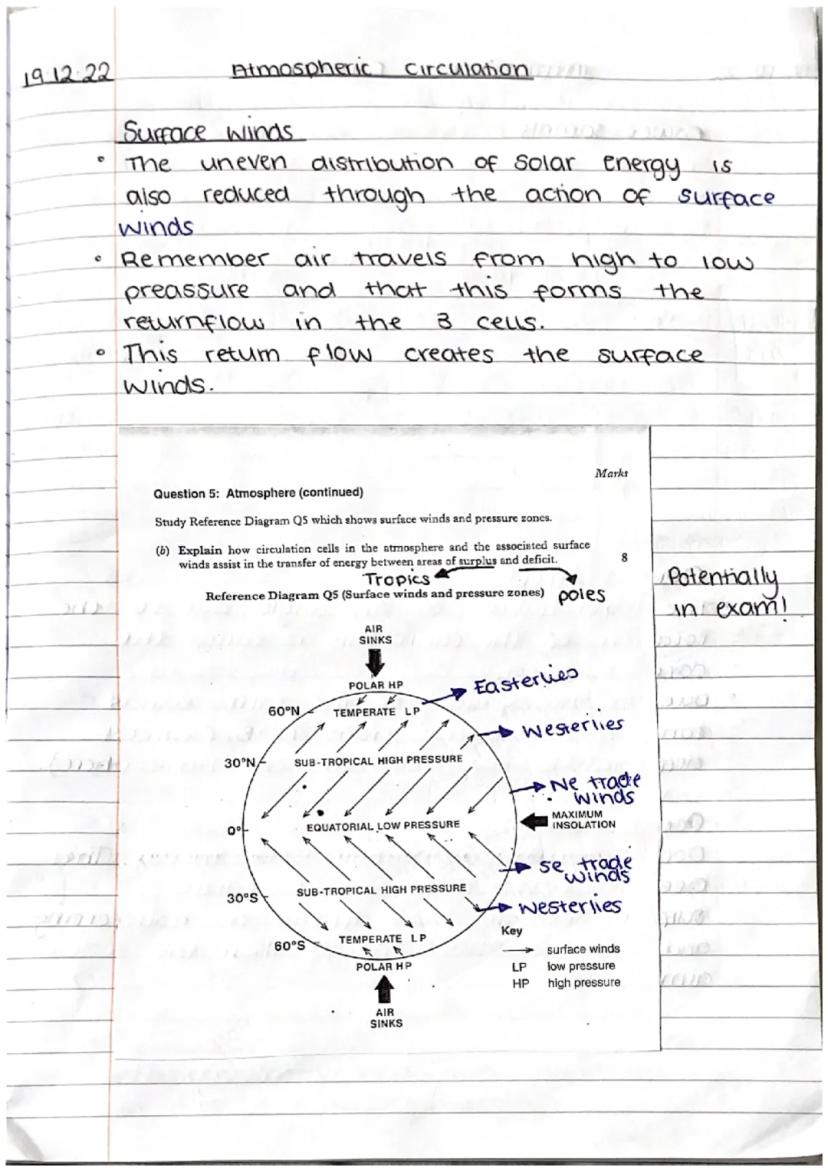 19.12.22
Atmospheric Circulation
Surface winds
• The uneven distribution of Solar energy is
also reduced through the action of surface
winds
• Remember air travels from high to low
preassure and that this forms the
returnflow in the 3 cells.
• This return flow creates the surface
winds.
Marks
Question 5: Atmosphere (continued)
Study Reference Diagram Q5 which shows surface winds and pressure zones.
(b) Explain how circulation cells in the atmosphere and the associated surface
winds assist in the transfer of energy between areas of surplus and deficit. 8
Tropics
poles
Potentially
in exam!
Reference Diagram Q5 (Surface winds and pressure zones)
AIR
SINKS
POLAR HP
Easterlies
60°N
TEMPERATE LP
Westerlies
30°N
SUB-TROPICAL HIGH PRESSURE
Ne trade
winds
MAXIMUM
INSOLATION
0°
EQUATORIAL LOW PRESSURE
Se trade
winds
30°S
SUB-TROPICAL HIGH PRESSURE
Westerlies
60°S
TEMPERATE LP
POLAR HP
Key
surface winds
LP low pressure
HP high pressure
AIR
SINKS